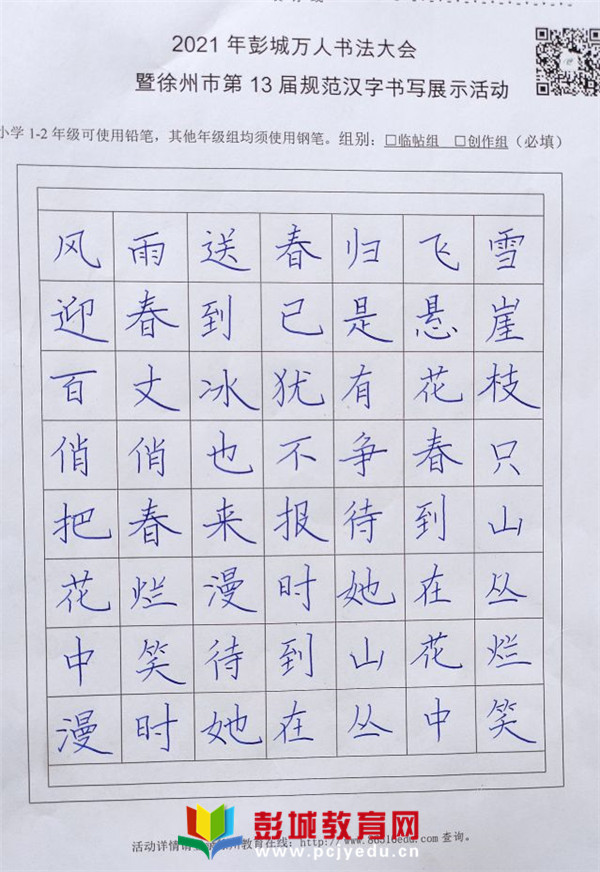 2021 年彭城万人书法大会
暨徐州市第 13 届规范汉字书写展示活动
小学 1-2 年级可使用铅笔，其他年级组均须使用钢笔。组别：□临帖组 □创作组（必填）
风雨送春归飞雪
迎春到已是悬崖
百丈冰犹有花枝
俏俏也不争春只
把春来报待到山
花烂漫时她在丛
中笑待到山花烂
漫时她在丛中笑
活动详情请 教育在线：http://www. edu.com 查询。
彭城教育网
www.pcjyedu.cn